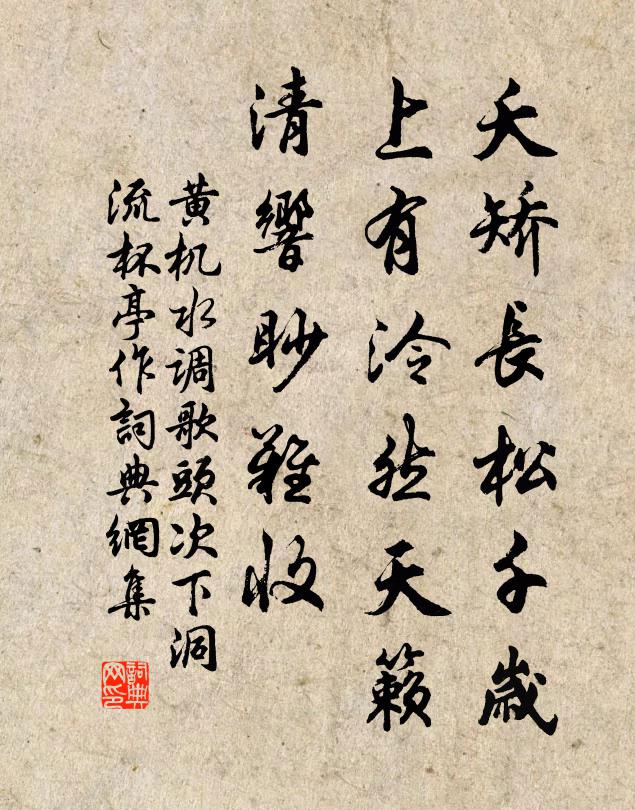 夭矫長松千歲
上有泠然天籟
清響眇難收
黄机水调歌頭次下洞
流杯亭作詞典網集
詞典网印